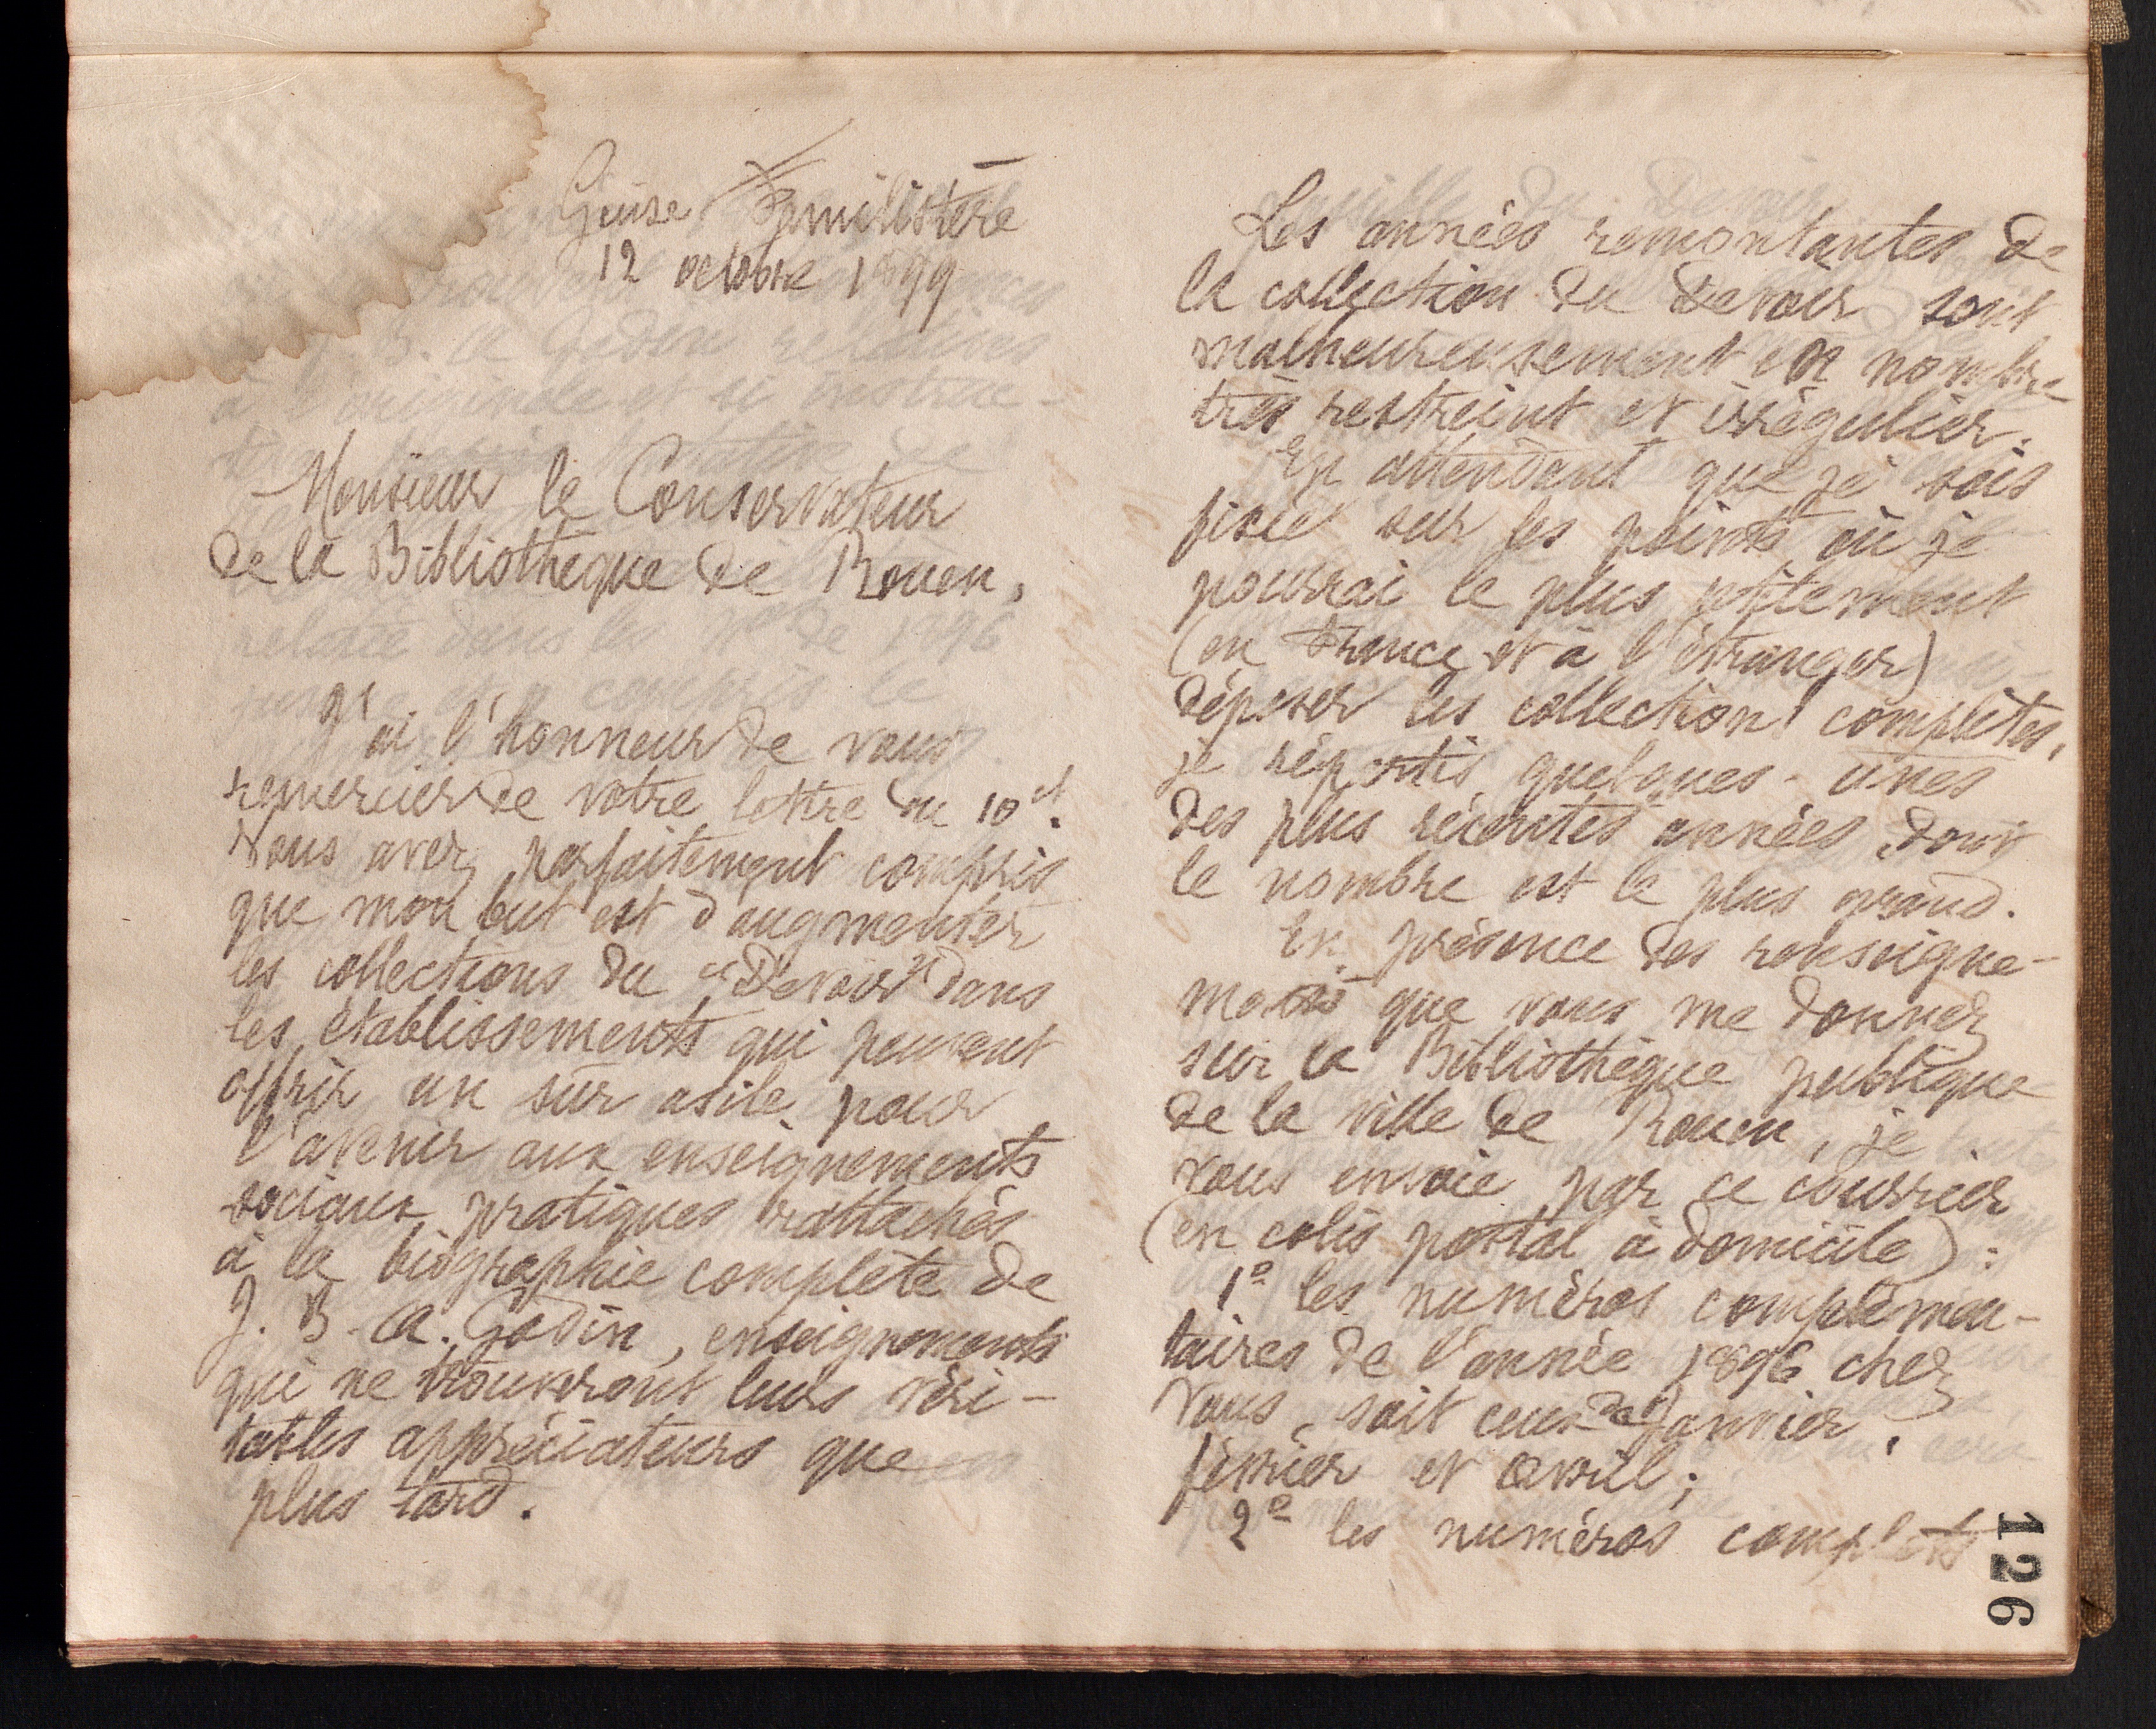 Guise Familistère
12 octobre 1899
Monsieur le Conservateur
de la Bibliothèque de Rouen,
J'ai l'honneur de vous
remercier de votre lettre du 10 ct.
Vous avez parfaitement compris
que mon but est d'augmenter
les collections du "Devoir" dans
les établissements qui peuvent
offrir un sûr asile pour
l'avenir aux enseignements
sociaux pratiques rattachés
à la biographie complète de
J. B. A. Godin, enseignements
qui ne trouveront leurs véri-
tables appréciateurs que
plus tard.
Les années remontantes de
la collection du Devoir sont
malheureusement en nombre
très restreint et irrégulier.
En attendant que je sois
fixée sur les points où je
pourrai le plus utilement
(en France et à l'étranger)
déposer les collections complètes,
je répartis quelques-unes
des plus récentes années dont
le nombre est le plus grand.
En présence des renseigne-
ments que vous me donnez
sur la Bibliothèque publique
de la ville de Rouen, je
vous envoie par ce courrier
(en colis postal à domicile) :
1º les numéros complémen-
taires de l'année 1896 chez
vous, soit ceux de Janvier,
février et avril ;
2º les numéros complets
126